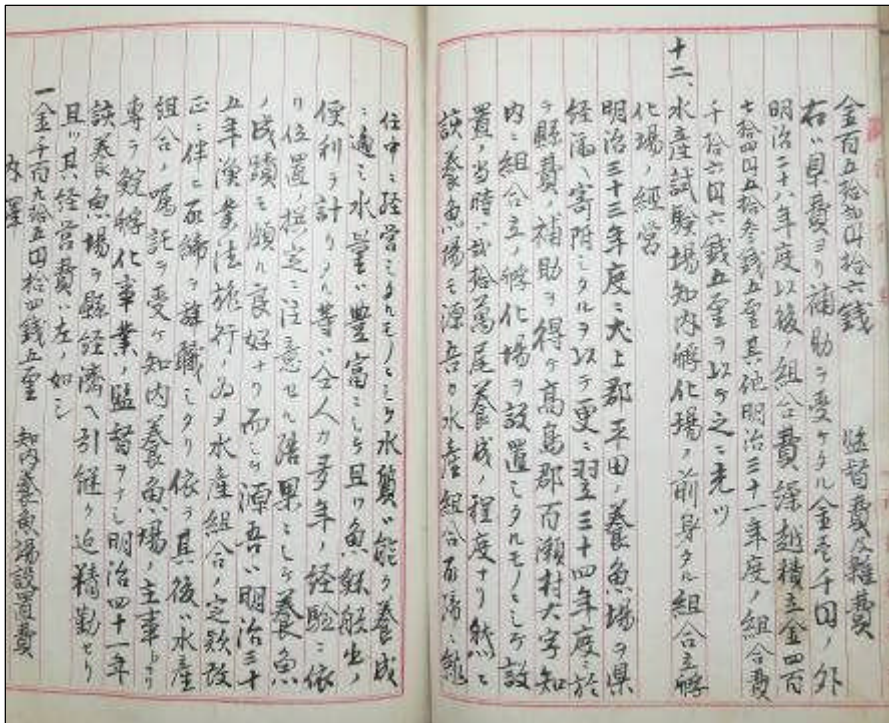 金百五拾弐円拾六銭　監督費及雑費
右ハ県費ヨリ補助ヲ受ケタル金壱千円ノ外
明治二十八年度以後ノ組合費繰越積立金四百
七拾四円五拾参銭五厘其他明治三十一年度ノ組合費
千拾六円六銭五厘ヲ以テ之ニ充ツ
十二、水産試験場知内孵化場ノ前身タル組合立孵
化場ノ経営
明治三十三年度ニ犬上郡平田ノ養魚場ヲ県
経済ヘ寄附シタルヲ以テ更ニ翌三十四年度ニ於
テ縣費ノ補助ヲ得テ高島郡百瀬村大字知
内ニ組合立ノ孵化場ヲ設置シタルモノニシテ設
置ノ当時ハ弐拾萬尾養成ノ程度ナリ然ヒ
該養魚場モ源吾カ水産組合取締ニ就
任中ニ経営シタルモノニシテ水質ハ能ク養成
ニ適シ水量ハ豊富ニシテ且ツ魚穌般出ノ
便利ヲ計リタル等ハ仝人カ多年ノ経験ニ依
リ位置ノ撰定ニ注意セル結果ニシテ養魚
ノ成蹟モ頗ル良好ナリ而シテ源吾ハ明治三十
五年漁業法施行ノ為メ水産組合ノ定款改
正ニ伴ヒ取締ヲ辞職シタリ依テ其後ハ水産
組合ノ嘱託ヲ受ケ知内養魚場ノ主事トナリ
専ラ鯇孵化事業ノ監督ヲナシ明治四十一年
該養魚場ヲ縣経済ヘ引継ク迄精勤セリ
且ツ其経営費ハ左ノ如シ
一金千百九拾五円拾四銭五厘　知内養魚場設置費
内譯